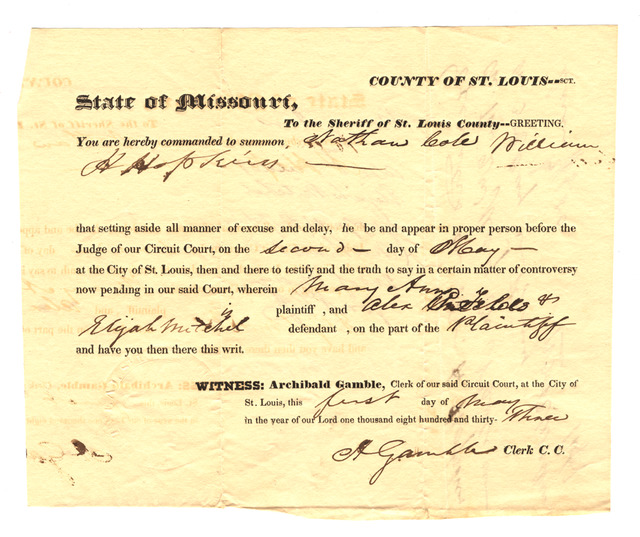 COUNTY OF ST. LOUIS--SCT.
State of Missouri,
To the Sheriff of St. Louis County--GREETING.
You are hereby commanded to summon, Nathan Cole William
H Hopkins
that setting aside all manner of excuse and delay, he be and appear in proper person before the
Judge of our Circuit Court, on the second day of May
at the City of St. Louis, then and there to testify and the truth to say in a certain matter of controversy
now pending in our said Court, wherein Mary Ann
is plaintiff , and Alex
Elijah Mitchel defendant , on the part of the Plaintiff
and have you then there this writ.
WITNESS: Archibald Gamble, Clerk of our said Circuit Court, at the City of
St. Louis, this first day of May
in the year of our Lord one thousand eight hundred and thirty- Three
A Gamble Clerk C. C.